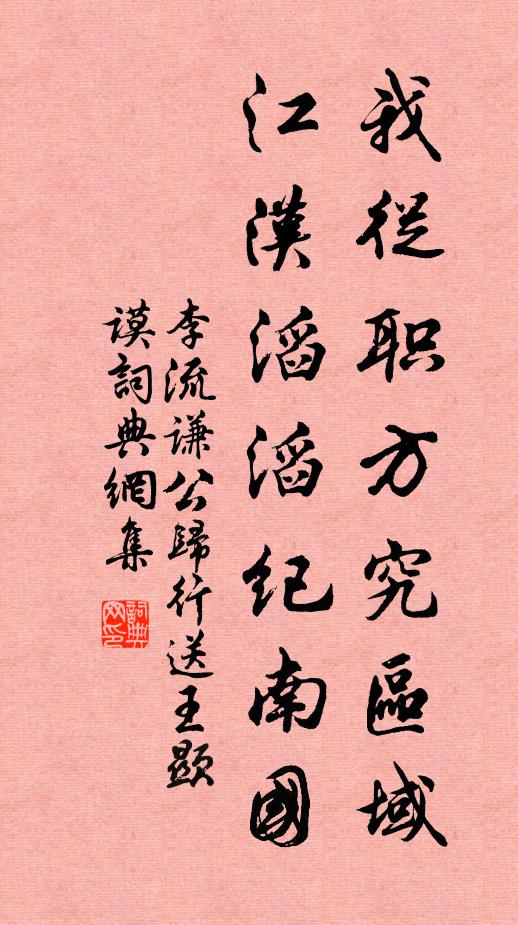 我從职方究區域
江漢滔滔纪南國
李流谦公歸行送王顯
謨詞典網集
詞典网印